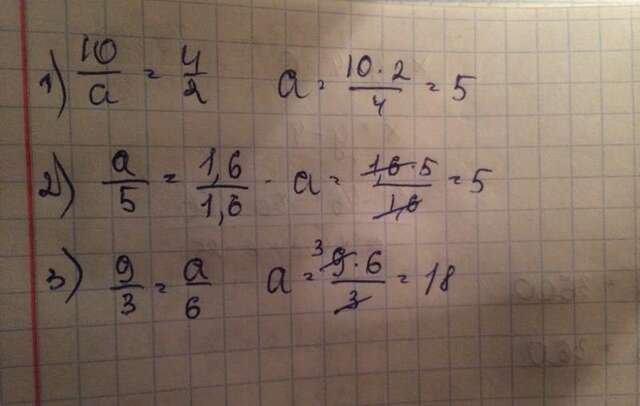 1) 10/a = 4/2 a = 10·2/4 = 5
2) a/5 = 1,6/1,6 - a = 1,6·5/1,6 = 5
3) 9/3 = a/6 a = 3 9·6/3 = 18